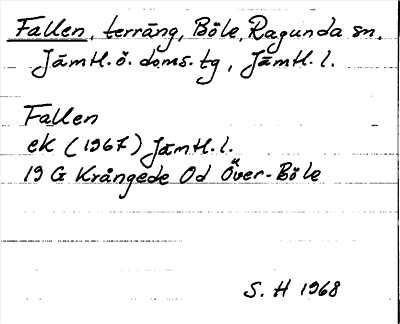 Fallen, terräng, Böle, Ragunda sn.
Jämtl. ö. doms. tg, Jämtl. l.
Fallen
ek (1967) Jämtl. l.
19 G Krångede Od Över-Böle
S. H 1968